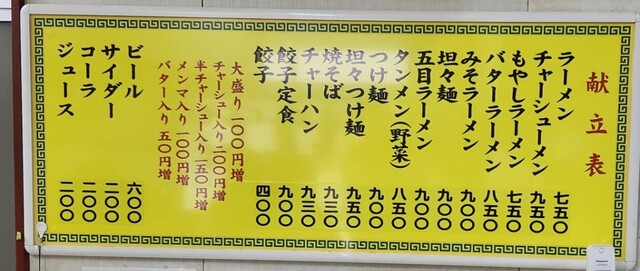 献立表
ラーメン 七五〇
チャーシューメン 九五〇
もやしラーメン 七五〇
バターラーメン 八五〇
みそラーメン 九〇〇
坦々麺 九〇〇
五目ラーメン 九〇〇
タンメン(野菜) 八五〇
つけ麺 九〇〇
坦々つけ麺 九五〇
焼そば 九三〇
チャーハン 九三〇
餃子定食 九〇〇
餃子 四〇〇
大盛り一〇〇円増
チャーシュー入り二〇〇円増
半チャーシュー入り一五〇円増
メンマ入り一〇〇円増
バター入り五〇円増
ビール 六〇〇
サイダー 二〇〇
コーラ 二〇〇
ジュース 二〇〇